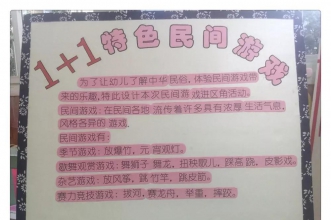 1+1特色民间游戏
为了让幼儿了解中华民俗，体验民间游戏带
来的乐趣，特此设计本次民间游戏进区角活动。
民间游戏：在民间各地 流传着许多具有浓厚 生活气息，
风格各异的 游戏.
民间游戏有：
季节游戏：放爆竹，元 宵观灯。
歌舞观赏游戏：舞狮子 舞龙，扭秧歌儿，踩高 跷，皮影戏。
杂艺游戏：放风筝，跳 竹竿，跳皮筋。
赛力竞技游戏：拔河，赛龙舟，举重，摔跤。